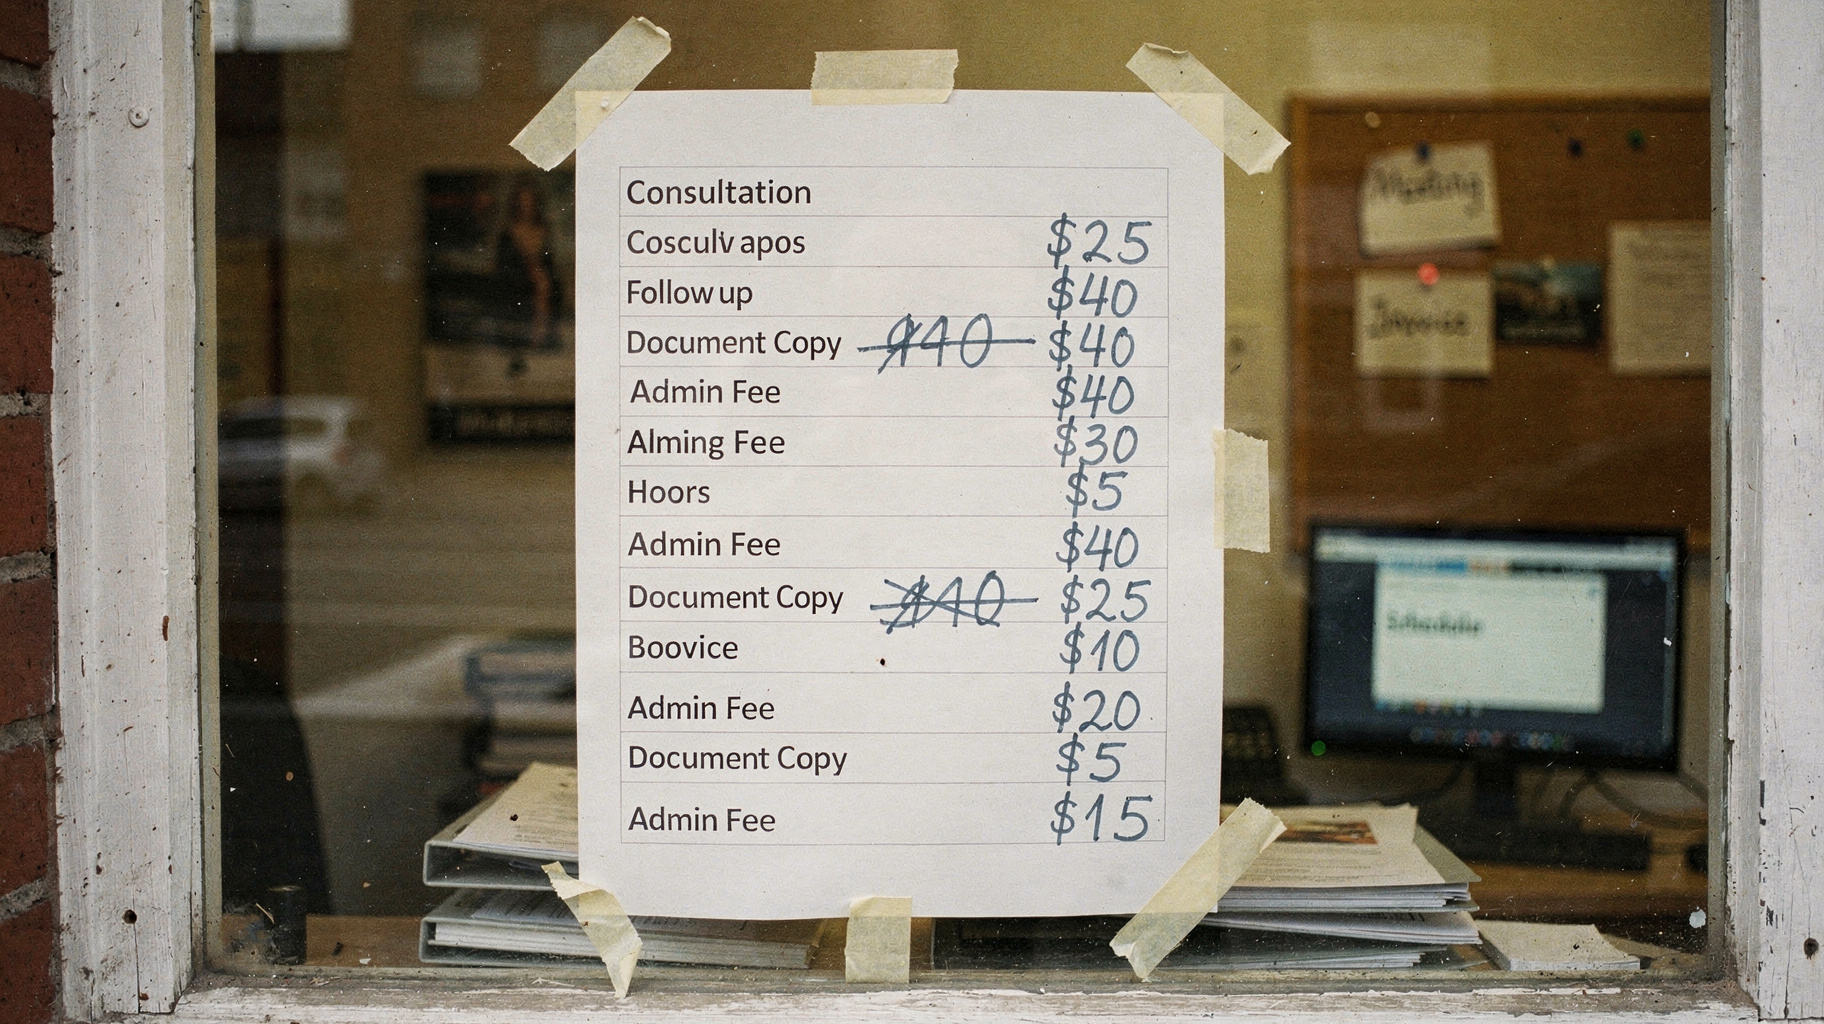 Consultation
Cosculv apos $25
Follow up $40
Document Copy $40 $40
Admin Fee $40
Alming Fee $30
Hoors $5
Admin Fee $40
Document Copy $25
Boovice $10
Admin Fee $20
Document Copy $5
Admin Fee $15
Meeting
Schedule